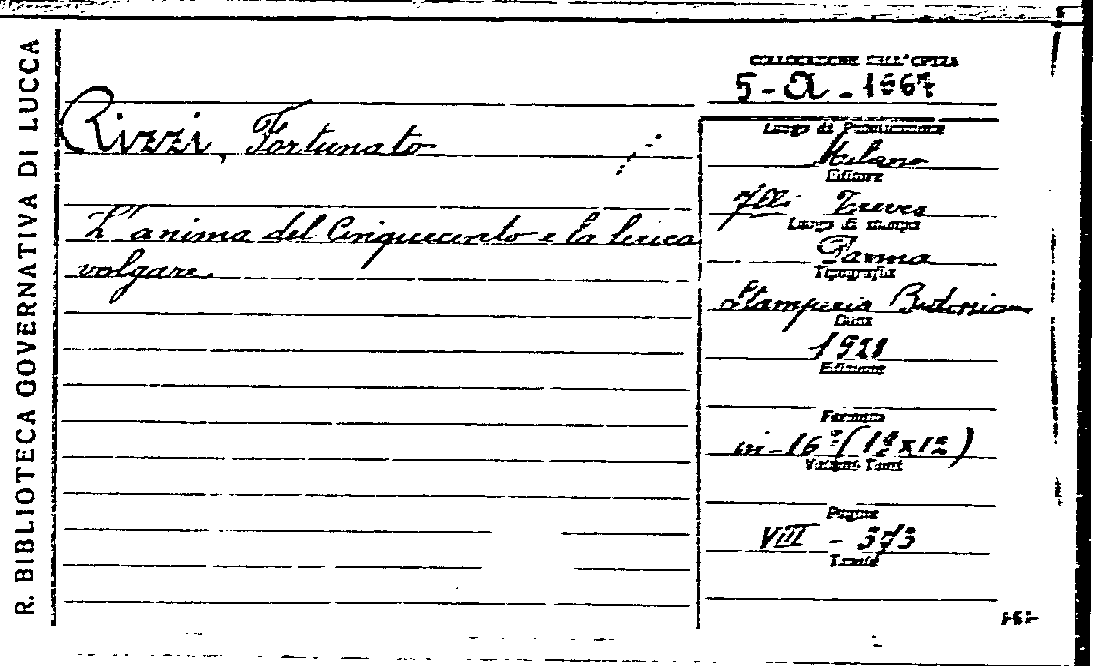 R. BIBLIOTECA GOVERNATIVA DI LUCCA
COLLOCAZIONE DELL'OPERA
5-a-1667
Rizzi, Fortunato
L'anima del Cinquecento e la lirica
volgare.
Luogo di Pubblicazione
Milano
Editore
Flli Treves
Luogo di stampa
Parma
Tipografia
Stamperia Bodoniana
Data
1928
Edizione
Formato
in-16° (19x12)
Volumi Tomi
Pagine
VIII - 373
Tavole